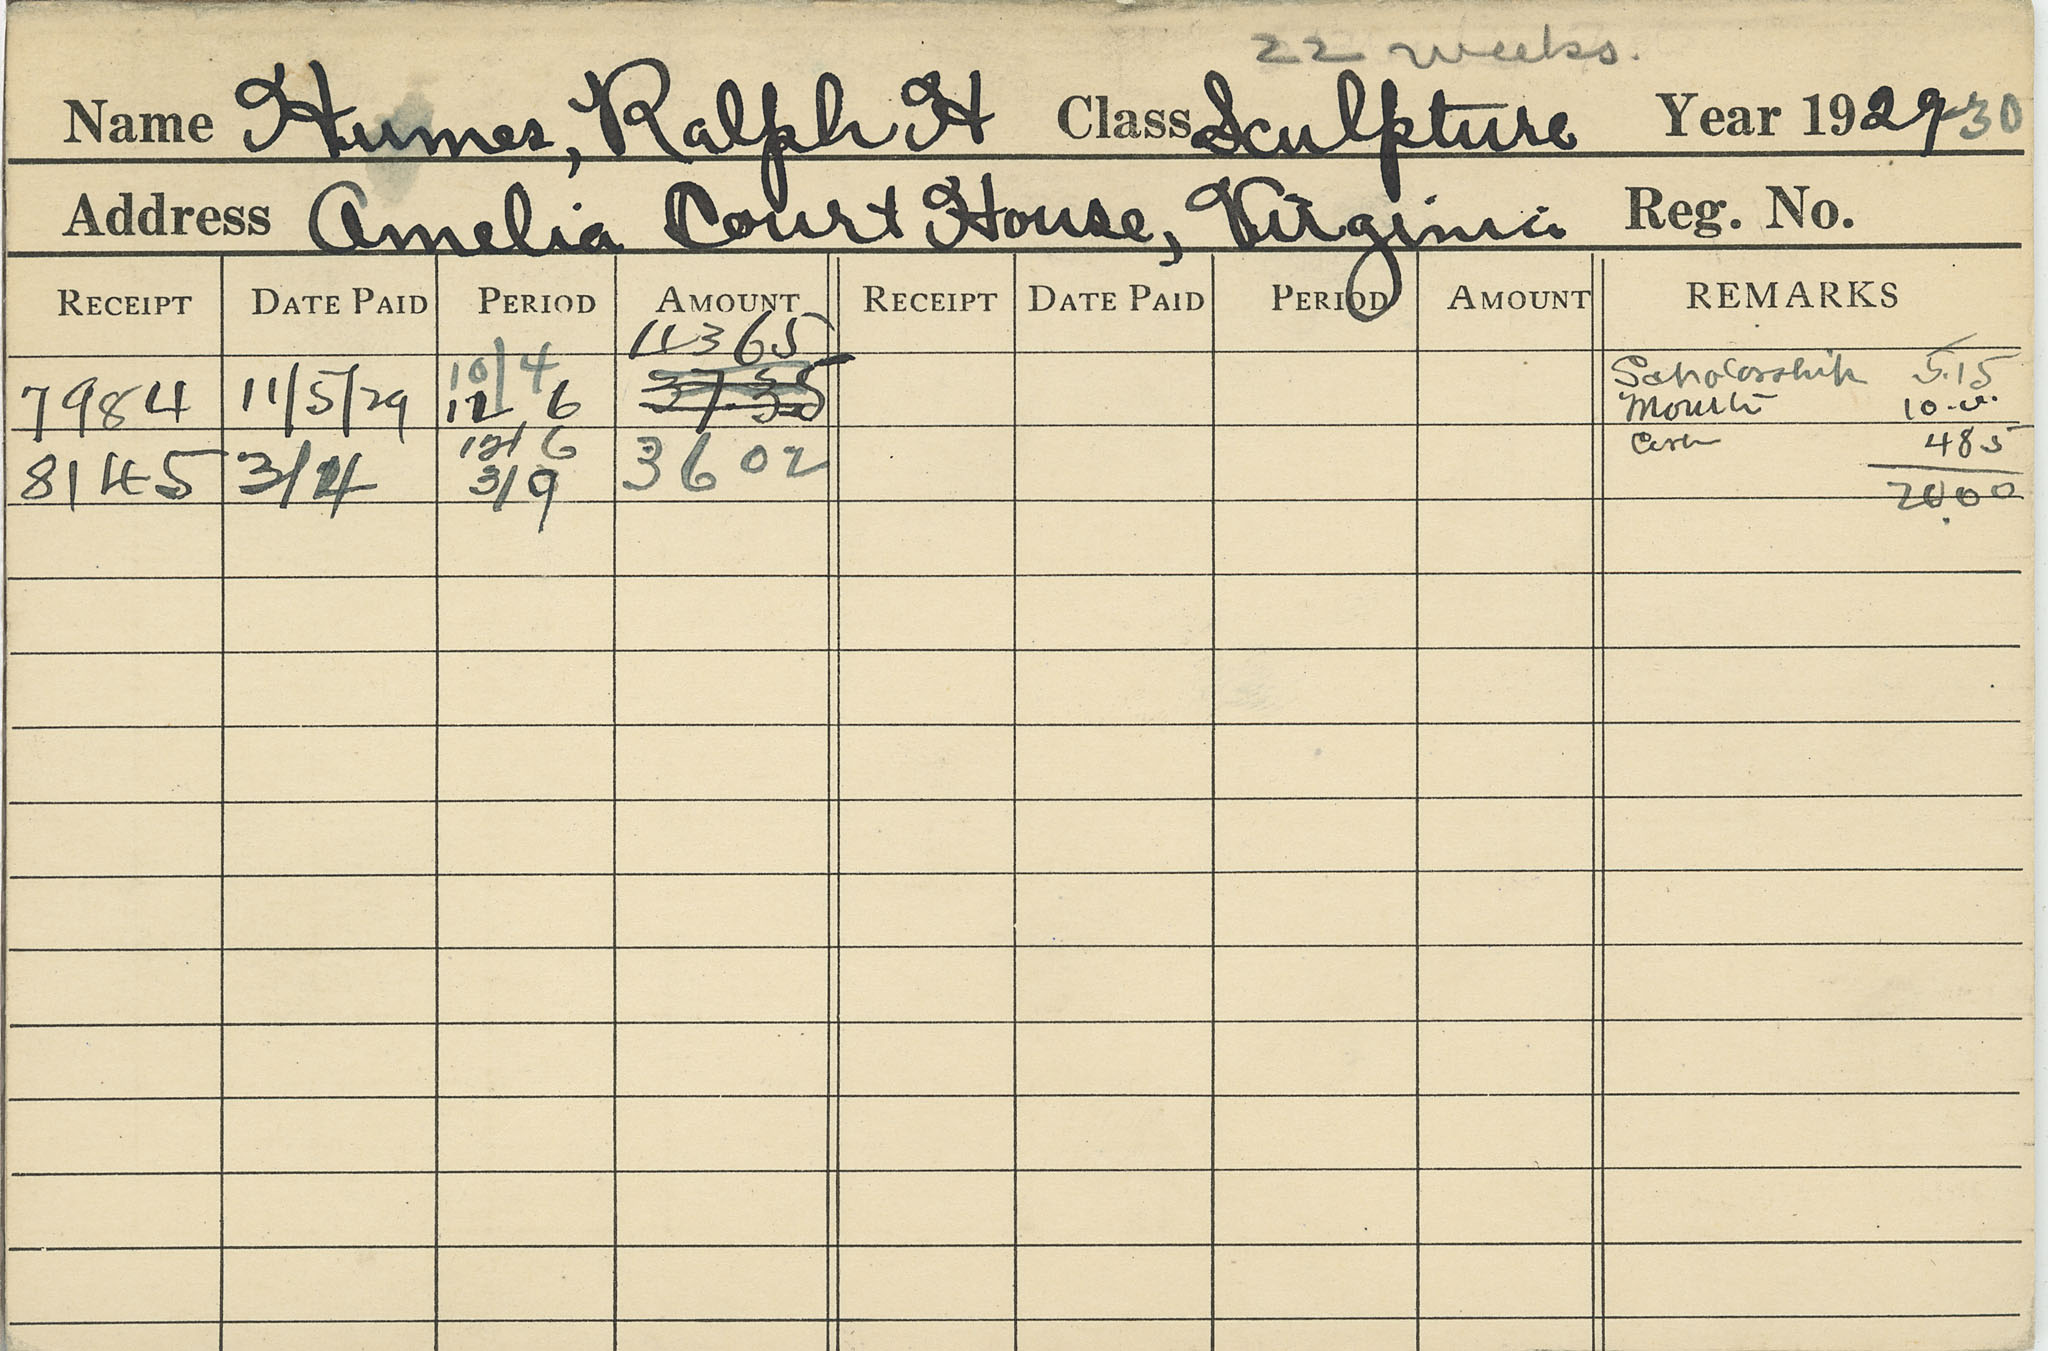 22 weeks.
Name Humes, Ralph H Class Sculpture Year 1929-30
Address Amelia Court House, Virginia Reg. No.
RECEIPT DATE PAID PERIOD AMOUNT RECEIPT DATE PAID PERIOD AMOUNT REMARKS
43 65
10/4 Scholarship 5.15
7984 11/5/29 12 6 37.35 10.00
12/6 Cash 485
8145 3/4 3/9 36 02 20.00